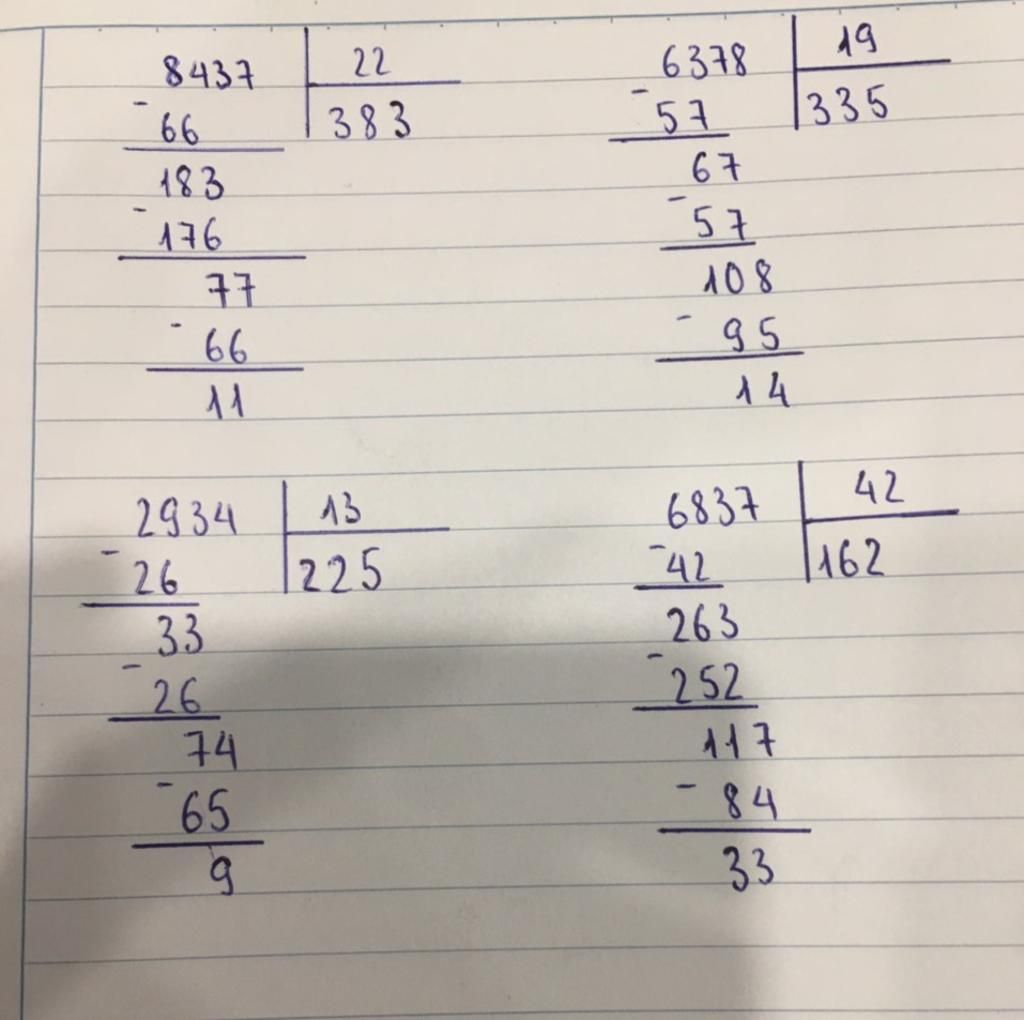 8437 22
- 66 383
183
- 176
77
- 66
11
6378 19
- 57 335
67
- 57
108
- 95
14
2934 13
- 26 225
33
- 26
74
- 65
9
6837 42
- 42 162
263
- 252
117
- 84
33